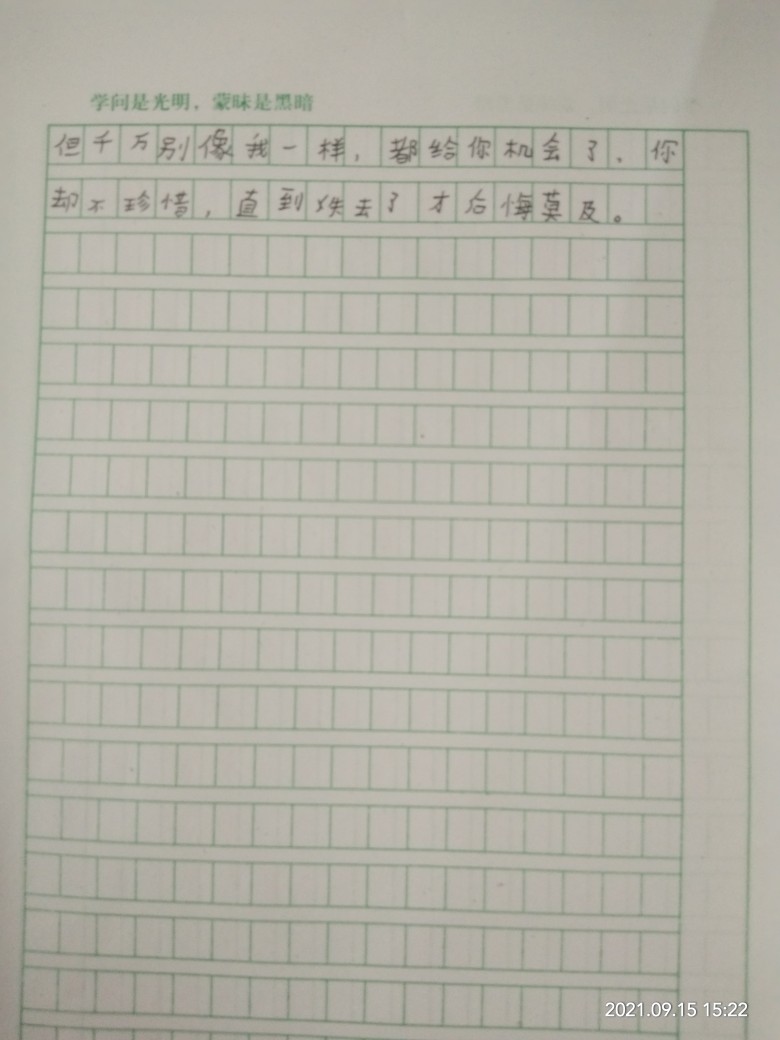 学问是光明，蒙昧是黑暗
但千万别像我一样，都给你机会了、你
却不珍惜，直到失去了才后悔莫及。
2021.09.15 15:22